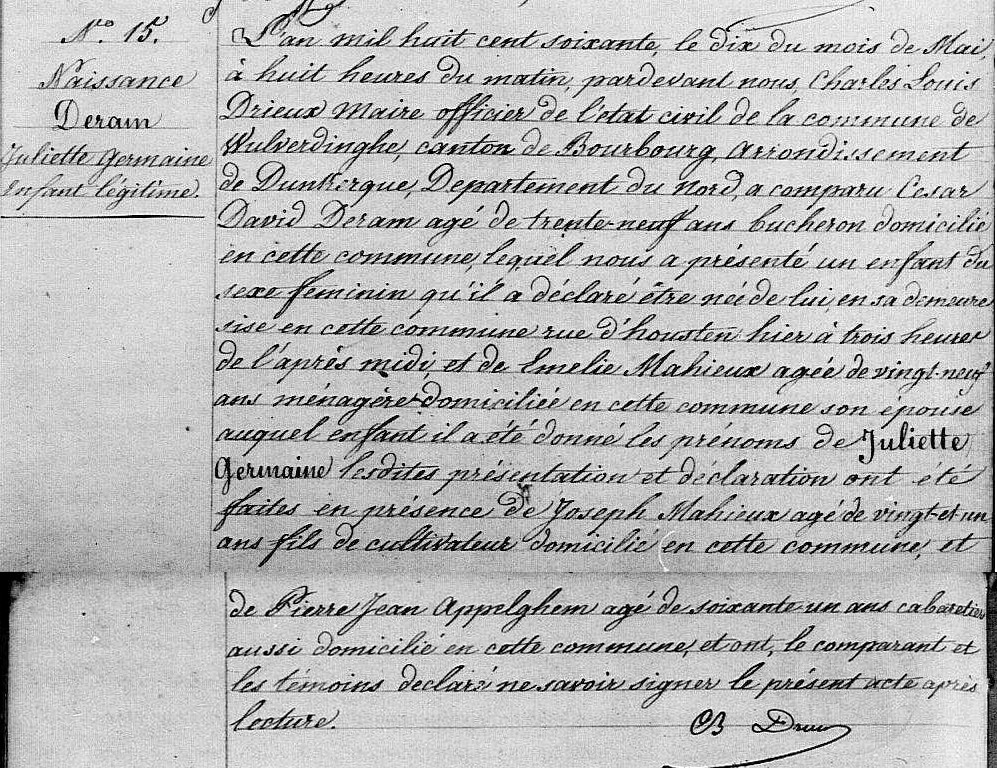 N.o 15.
Naissance
Deram
Juliette Germaine
enfant légitime.
L'an mil huit cent soixante, le dix du mois de Mai,
à huit heures du matin, pardevant nous, Charles Louis
Drieux Maire officier de l'état civil de la commune de
Wulverdinghe, canton de Bourbourg, arrondissement
de Dunkerque, Departement du Nord, a comparu Cesar
David Deram agé de trente-neuf ans bucheron domicilié
en cette commune, lequel nous a présenté un enfant du
sexe feminin qu'il a déclaré être née de lui, en sa demeure
sise en cette commune rue d'housten hier à trois heures
de l'après midi, et de Emelie Mahieux agée de vingt-neuf
ans ménagère domiciliée en cette commune son épouse
auquel enfant il a été donné les prénoms de Juliette
Germaine lesdites présentation et déclaration ont été
faites en présence de Joseph Mahieux agé de vingt-et-un
ans fils de cultivateur domicilié en cette commune, et
de Pierre Jean Appelghem agé de soixante-un ans cabaretier
aussi domicilié en cette commune, et ont, le comparant et
les témoins declaré ne savoir signer le présent acte après
lecture.